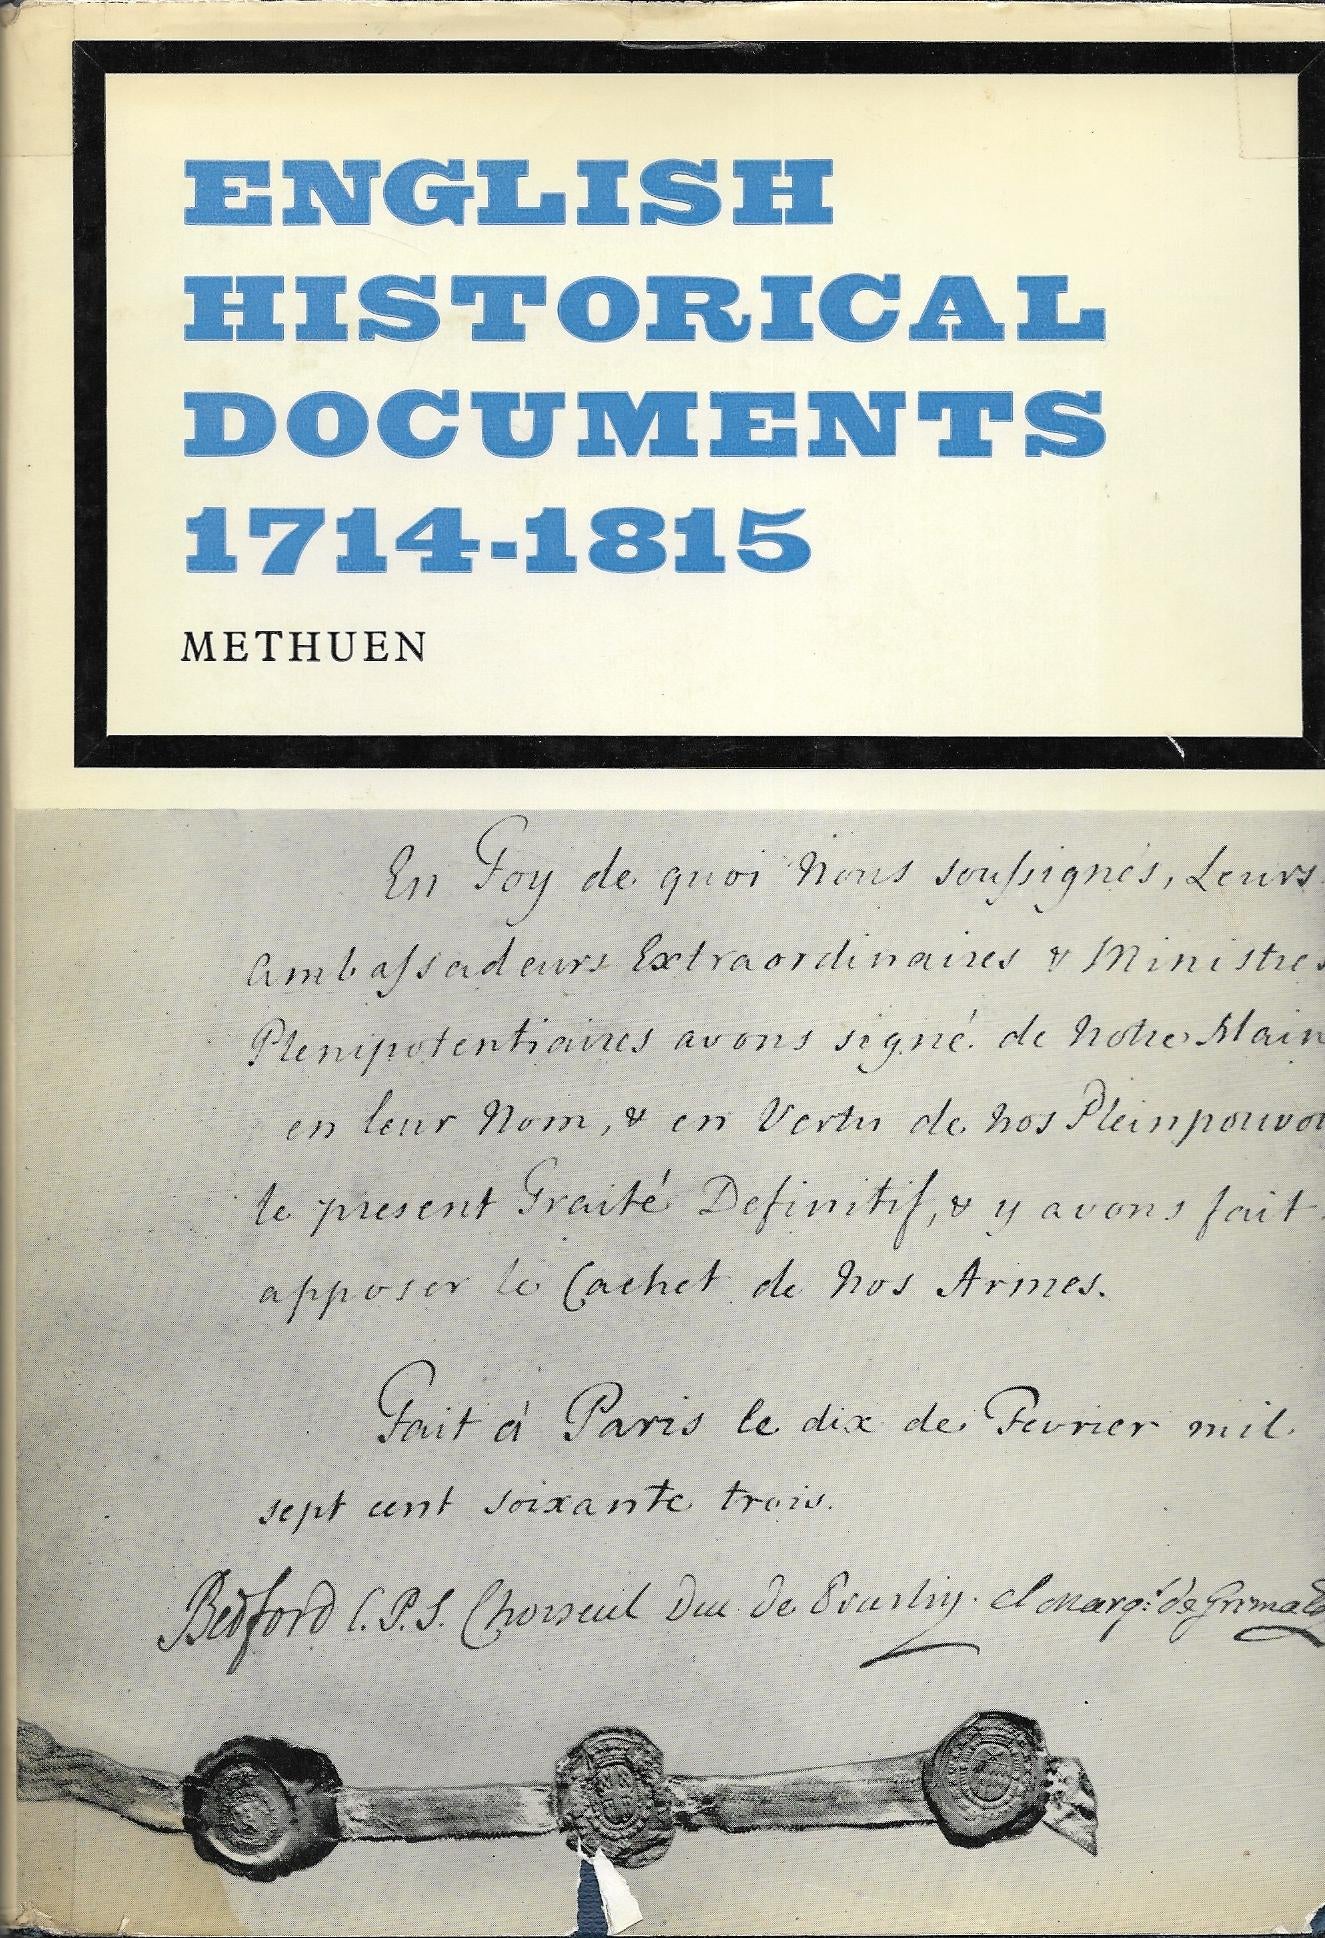 ENGLISH
HISTORICAL
DOCUMENTS
1714-1815
METHUEN
En Foy de quoi Nous soussignés, Leurs
Ambassadeurs Extraordinaires & Ministres
Plenipotentiaires avons signé de notre Main
en leur Nom, & en Vertu de nos Pleinpouvoi
le present Traité Definitif, & y avons fait
apposer le Cachet de nos Armes.
Fait à Paris le dix de Fevrier mil
sept cent soixante trois.
Bedford C.P.S. Choiseul Duc de Praslin. el Marq.s de Grimald